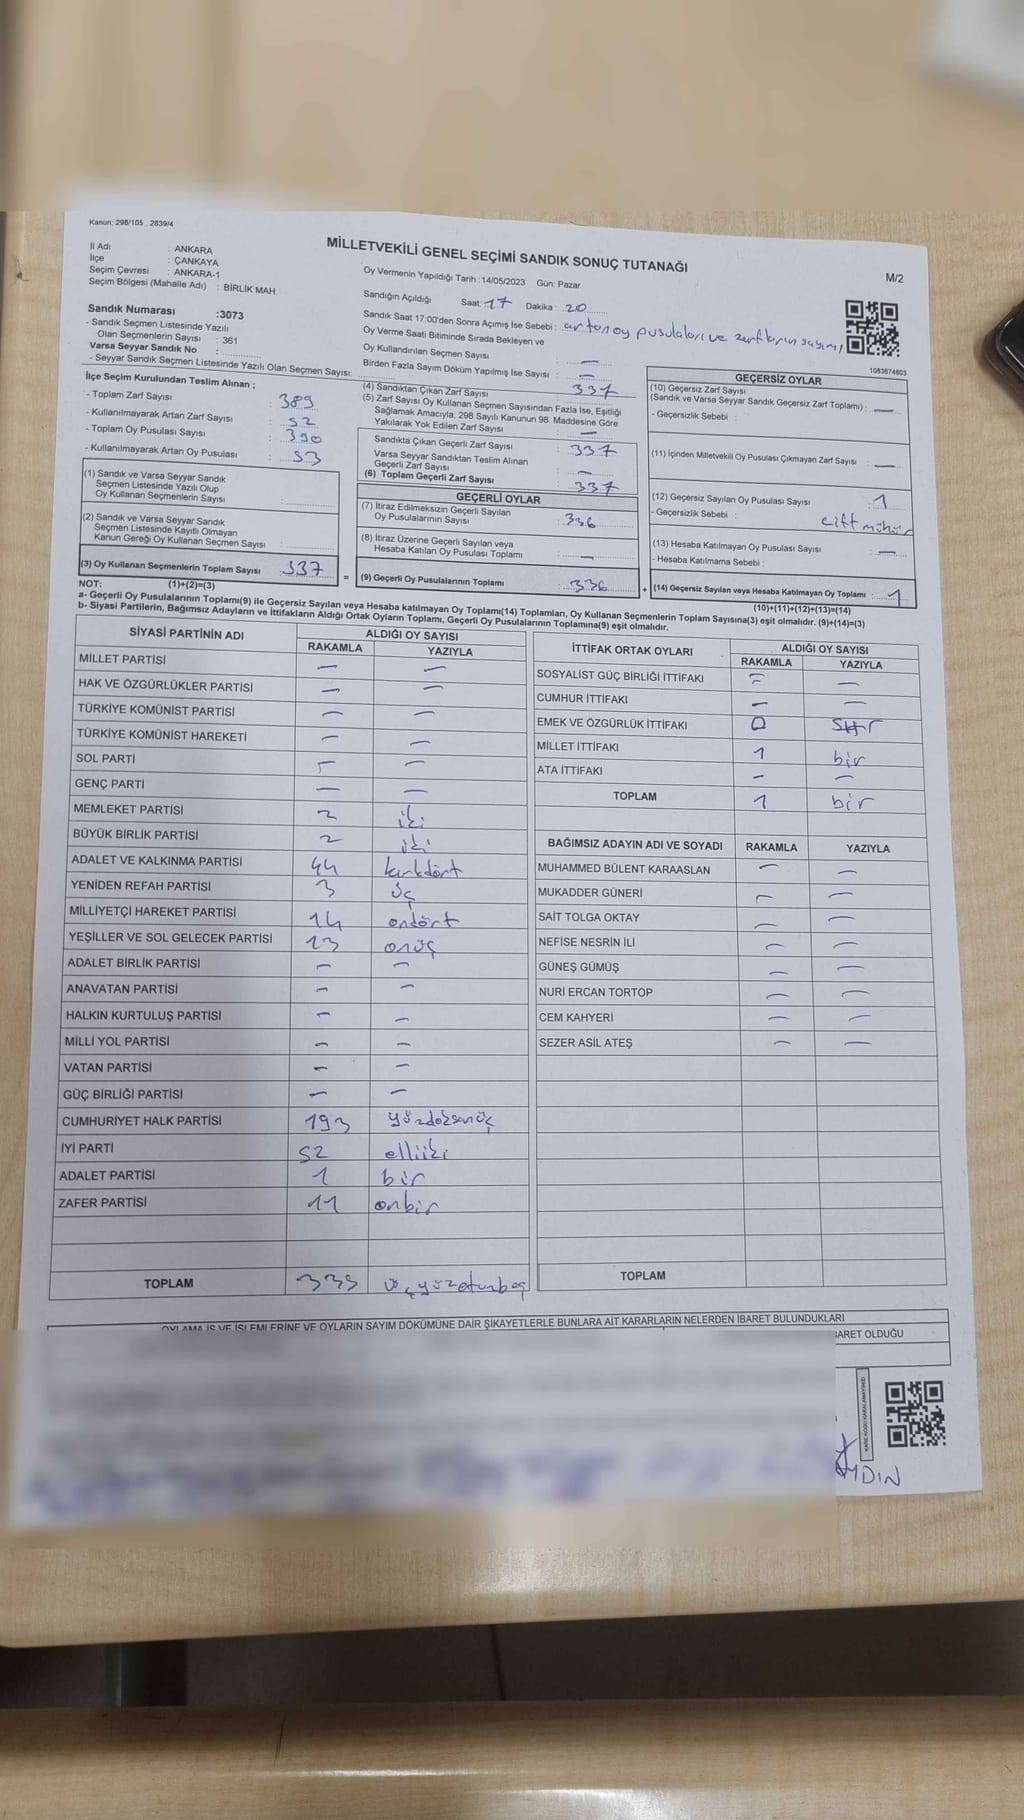 Kanun: 298/105 , 2839/4
MİLLETVEKİLİ GENEL SEÇİMİ SANDIK SONUÇ TUTANAĞI
M/2
İl Adı : ANKARA
İlçe : ÇANKAYA
Seçim Çevresi : ANKARA-1
Seçim Bölgesi (Mahalle Adı) : BİRLİK MAH.
Oy Vermenin Yapıldığı Tarih :14/05/2023 Gün: Pazar
Sandığın Açıldığı Saat: 17 Dakika : 20
Sandık Saat 17:00'den Sonra Açımış İse Sebebi : artan oy pusulaları ve zarfların sayımı
Oy Verme Saati Bitiminde Sırada Bekleyen ve
Oy Kullandırılan Seçmen Sayısı : —
Birden Fazla Sayım Döküm Yapılmış İse Sayısı : —
1083674803
Sandık Numarası :3073
- Sandık Seçmen Listesinde Yazılı
Olan Seçmenlerin Sayısı : 361
Varsa Seyyar Sandık No :
- Seyyar Sandık Seçmen Listesinde Yazılı Olan Seçmen Sayısı:
İlçe Seçim Kurulundan Teslim Alınan ;
- Toplam Zarf Sayısı : 389
- Kullanılmayarak Artan Zarf Sayısı : 52
- Toplam Oy Pusulası Sayısı : 390
- Kullanılmayarak Artan Oy Pusulası : 53
(1) Sandık ve Varsa Seyyar Sandık
Seçmen Listesinde Yazılı Olup
Oy Kullanan Seçmenlerin Sayısı :
(2) Sandık ve Varsa Seyyar Sandık
Seçmen Listesinde Kayıtlı Olmayan
Kanun Gereği Oy Kullanan Seçmen Sayısı :
(3) Oy Kullanan Seçmenlerin Toplam Sayısı : 337
(4) Sandıktan Çıkan Zarf Sayısı : 337
(5) Zarf Sayısı Oy Kullanan Seçmen Sayısından Fazla İse, Eşitliği
Sağlamak Amacıyla, 298 Sayılı Kanunun 98. Maddesine Göre
Yakılarak Yok Edilen Zarf Sayısı : —
Sandıkta Çıkan Geçerli Zarf Sayısı : 337
Varsa Seyyar Sandıktan Teslim Alınan
Geçerli Zarf Sayısı : —
(6) Toplam Geçerli Zarf Sayısı : 337
GEÇERLİ OYLAR
(7) İtiraz Edilmeksizin Geçerli Sayılan
Oy Pusulalarının Sayısı : 336
(8) İtiraz Üzerine Geçerli Sayılan veya
Hesaba Katılan Oy Pusulası Toplamı : —
= (9) Geçerli Oy Pusulalarının Toplamı : 336
GEÇERSİZ OYLAR
(10) Geçersiz Zarf Sayısı
(Sandık ve Varsa Seyyar Sandık Geçersiz Zarf Toplamı) : —
- Geçersizlik Sebebi :
(11) İçinden Milletvekili Oy Pusulası Çıkmayan Zarf Sayısı : —
(12) Geçersiz Sayılan Oy Pusulası Sayısı : 1
- Geçersizlik Sebebi : çift mühür
(13) Hesaba Katılmayan Oy Pusulası Sayısı : —
- Hesaba Katılmama Sebebi :
+ (14) Geçersiz Sayılan veya Hesaba Katılmayan Oy Toplamı : 1
NOT: (1)+(2)=(3)
(10)+(11)+(12)+(13)=(14)
a- Geçerli Oy Pusulalarının Toplamı(9) ile Geçersiz Sayılan veya Hesaba katılmayan Oy Toplamı(14) Toplamları, Oy Kullanan Seçmenlerin Toplam Sayısına(3) eşit olmalıdır. (9)+(14)=(3)
b- Siyasi Partilerin, Bağımsız Adayların ve İttifakların Aldığı Ortak Oyların Toplamı, Geçerli Oy Pusulalarının Toplamına(9) eşit olmalıdır.
SİYASİ PARTİNİN ADI ALDIĞI OY SAYISI
RAKAMLA YAZIYLA
MİLLET PARTİSİ — —
HAK VE ÖZGÜRLÜKLER PARTİSİ — —
TÜRKİYE KOMÜNİST PARTİSİ — —
TÜRKİYE KOMÜNİST HAREKETİ — —
SOL PARTİ — —
GENÇ PARTİ — —
MEMLEKET PARTİSİ 2 iki
BÜYÜK BİRLİK PARTİSİ 2 iki
ADALET VE KALKINMA PARTİSİ 44 kırkdört
YENİDEN REFAH PARTİSİ 3 üç
MİLLİYETÇİ HAREKET PARTİSİ 14 ondört
YEŞİLLER VE SOL GELECEK PARTİSİ 13 onüç
ADALET BİRLİK PARTİSİ — —
ANAVATAN PARTİSİ — —
HALKIN KURTULUŞ PARTİSİ — —
MİLLİ YOL PARTİSİ — —
VATAN PARTİSİ — —
GÜÇ BİRLİĞİ PARTİSİ — —
CUMHURİYET HALK PARTİSİ 193 yüzdoksanüç
İYİ PARTİ 52 elliiki
ADALET PARTİSİ 1 bir
ZAFER PARTİSİ 11 onbir
TOPLAM 335 üçyüzotuzbeş
İTTİFAK ORTAK OYLARI ALDIĞI OY SAYISI
RAKAMLA YAZIYLA
SOSYALİST GÜÇ BİRLİĞİ İTTİFAKI — —
CUMHUR İTTİFAKI — —
EMEK VE ÖZGÜRLÜK İTTİFAKI 0
MİLLET İTTİFAKI 1 bir
ATA İTTİFAKI — —
TOPLAM 1 bir
BAĞIMSIZ ADAYIN ADI VE SOYADI RAKAMLA YAZIYLA
MUHAMMED BÜLENT KARAASLAN — —
MUKADDER GÜNERİ — —
SAİT TOLGA OKTAY — —
NEFİSE NESRİN İLİ — —
GÜNEŞ GÜMÜŞ — —
NURİ ERCAN TORTOP — —
CEM KAHYERİ — —
SEZER ASİL ATEŞ — —
TOPLAM
OYLAMA İŞ VE İŞLEMLERİNE VE OYLARIN SAYIM DÖKÜMÜNE DAİR ŞİKAYETLERLE BUNLARA AİT KARARLARIN NELERDEN İBARET BULUNDUKLARI
BARET OLDUĞU
KARE KODU KARALAMAYINIZ!
AYDIN